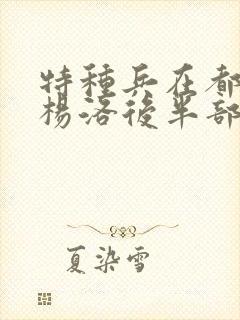 特種兵在都
楊洛後半部
夏染雪